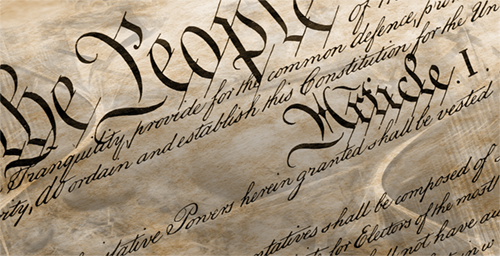 he People of th
Tranquility, provide for the common defence, pro
rity, do ordain and establish this Constitution for the Un
Article. I.
slative Powers herein granted shall be vested
ntatives shall be composed of
for Electors of the most
all not have
in w